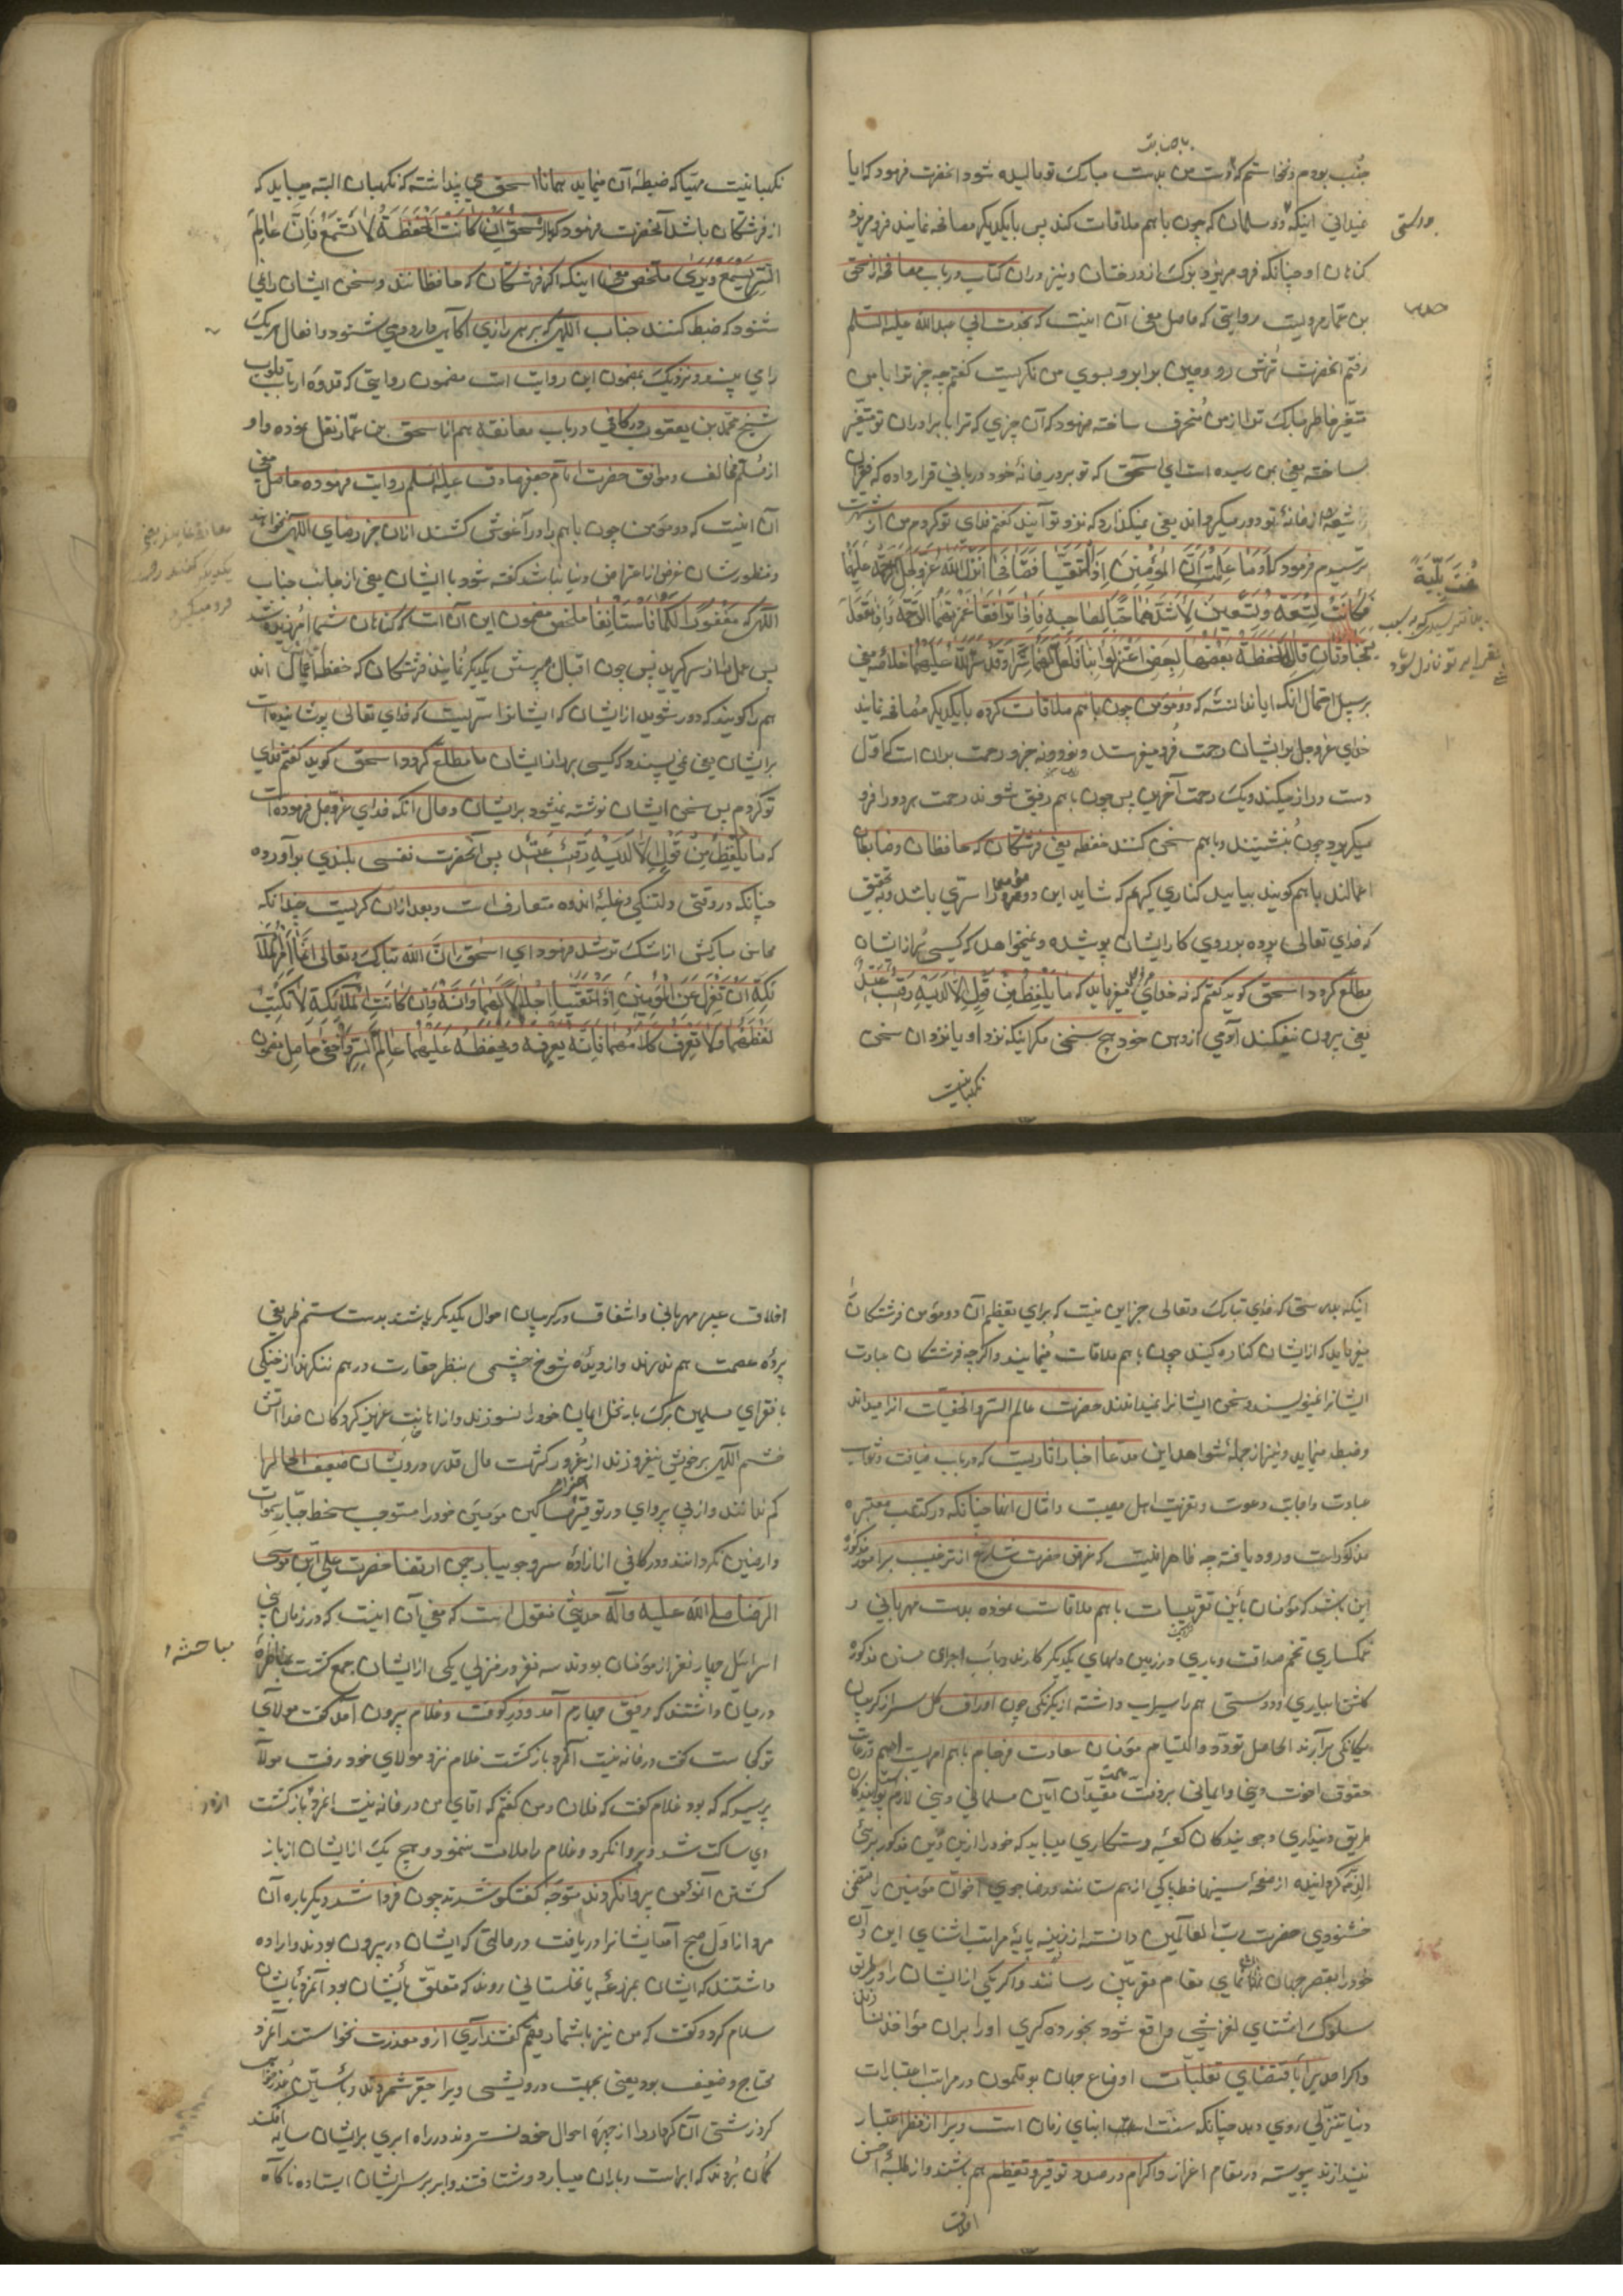 جنب بودم و نخواستم که دست من بدست مبارک تو مالیده شود آنحضرت فرمود که ایا
نمیدانی اینکه دو مسلمان که چون با هم ملاقات کنند پس با یکدیگر مصافحه نمایند فرو میریزد
کناهان او چنانکه فرو میریزد برک از درختان و نیز در ان کتاب در باب مصافحه از اسحق
بن عمار مرویست روایتی که حاصل معنی آن اینست که بخدمت ابی عبدالله علیه السلم
رفتم آنحضرت ترش رو و چین بر ابرو بسوی من نکریست کفتم چه چیز ترا با من
متغیر و خاطر مبارکت را از من منحرف ساخته فرمود که آن چیزی که ترا با برادران تو متغیر
ساخته یعنی بمن رسیده است ای اسحق که تو بر در خانهٔ خود دربانی قرار داده که فقرای
شیعه را از خانهٔ تو دور میکرداند یعنی نمیکذارد که نزد تو آیند کفتم فدای تو کردم من از شهرت
ترسیدم فرمود که أَوَمَا عَلِمْتَ أَنَّ المُؤْمِنَیْنِ إِذَا الْتَقَیَا فَتَصَافَحَا أَنْزَلَ اللهُ عَزَّ وَجَلَّ الرَّحْمَةَ عَلَیْهِمَا
فَکَانَتْ تِسْعَةٌ وَتِسْعِینَ لِأَشَدِّهِمَا حُبًّا لِصَاحِبِهِ فَإِذَا تَوَافَقَا غَمَرَتْهُمَا الرَّحْمَةُ وَإِذَا قَعَدَا
یَتَحَادَثَانِ قَالَ الْحَفَظَةُ بَعْضُهَا لِبَعْضٍ اعْتَزِلُوا بِنَا فَلَعَلَّ لَهُمَا سِرًّا وَقَدْ سَتَرَ اللهُ عَلَیْهِمَا خلاصه معنی
بر سبیل اجمال انکه ایا ندانسته که دو مؤمن چون با هم ملاقات کرده با یکدیکر مصافحه نمایند
خدای عز وجل بر ایشان رحمت فرو میفرستد و نود و نه جزو رحمت بر ان است که اول
دست دراز میکند و یک رحمت آخرین پس چون با هم رفیق شوند رحمت هر دو را فرو
میکیرد و چون بنشینند و با هم سخن کنند حفظه یعنی فرشتکان که محافظان و ضابطان
اعمالند با هم کویند بیایید کناری کیریم که شاید این دو مؤمن را سرّی باشد و بتحقیق
که خدای تعالی پرده بر روی کار ایشان پوشیده و نمیخواهد که کسی بر راز ایشان
مطلع کردد اسحق کوید کفتم که نه خدای میفرماید که مَا یَلْفِظُ مِنْ قَوْلٍ إِلَّا لَدَیْهِ رَقِیبٌ عَتِیدٌ
یعنی بیرون نیفکند آدمی از دهن خود هیچ سخنی مکر اینکه نزد او یا نزد ان سخن
نکهبانیت
دوستی
نکهبانیت مهیا که ضبط آن مینماید همانا اسحق پنداشته که نکهبان البته میباید که
از فرشتکان باشد آنحضرت فرمود که یا إِسْحَقُ إِنْ کَانَتِ الْحَفَظَةُ لَا تَسْمَعُ فَإِنَّ عَالِمَ
السِّرِّ یَسْمَعُ وَیَرَی ملخص معنی اینکه اکر فرشتکان که محافظانند و سخن ایشان را نمی
شنوند که ضبط کنند جناب الهی که بر هر رازی آکاهی دارد می شنود و افعال هر یک
را می بیند و نزدیک بمضمون این روایت است مضمون روایتی که قدوهٔ ارباب قلوب
شیخ محمد بن یعقوب در کافی در باب معانقه هم از اسحق بن عمار نقل نموده و او
از مسلم مخالف و موافق حضرت امام جعفر صادق علیه السلم روایت فرموده حاصل معنی
آن اینست که دو مؤمن چون با هم را در آغوش کشند از ان جز رضای الهی نخواهند
و منظورشان غرضی از اغراض دنیا نباشد کفته شود با ایشان یعنی از جانب جناب
الهی که مَغْفُورًا لَکُمَا فَاسْتَأْنِفَا ملخص مضمون این آن است که کناهان شما آمرزیده شد
پس عمل را از سر کیرید پس چون اقبال بپرسش یکدیکر نمایند فرشتکان که حفظهٔ اعمال اند
هم را کویند که دور شوید از ایشان که ایشانرا سرّیست که خدای تعالی پوشانیده است
بر ایشان یعنی نمی پسندد که کسی بر راز ایشان مطلع کردد اسحق کوید کفتم فدای
تو کردم پس سخن ایشان نوشته نمیشود بر ایشان و حال آنکه خدای عز وجل فرموده است
که مَا یَلْفِظُ مِنْ قَوْلٍ إِلَّا لَدَیْهِ رَقِیبٌ عَتِیدٌ پس آنحضرت نفسی بلندی برآورده
چنانکه در وقتی دلتنکی و غلبهٔ اندوه متعارف است و بعد از ان کریست چندانکه
محاسن مبارکش از اشک تر شد فرمود ای اسحق إِنَّ اللهَ تَبَارَکَ وَتَعَالَی إِنَّمَا أَمَرَ الْمَلَا
ئِکَةَ أَنْ تَعْتَزِلَ عَنِ الْمُؤْمِنَیْنِ إِذَا الْتَقَیَا إِجْلَالًا لَهُمَا وَإِنَّهُ وَإِنْ کَانَتِ الْمَلَائِکَةُ لَا تَکْتُبُ
لَفْظَهُمَا وَلَا تَعْرِفُ کَلَامَهُمَا فَإِنَّهُ یَعْرِفُهُ وَیَحْفَظُهُ عَلَیْهِمَا عَالِمُ السِّرِّ وَأَخْفَی حاصل مضمون
اینکه بدرستی که خدای تبارک و تعالی جز این نیست که برای تعظیم آن دو مؤمن فرشتکان را
میفرماید که از ایشان کناره کنید چون با هم ملاقات مینمایند و اکرچه فرشتکان عبارت
ایشانرا نمینویسند و سخن ایشانرا نمیدانند حضرت عالم السر والخفیات انرا میداند
وضبط مینماید و نیز از جملهٔ شواهد این مدعا اخبار اثاریست که در باب ضیافت و ثواب
عیادت و اجابت دعوت و تعزیت اهل مصیبت و امثال انها چنانکه در کتب معتبره
مذکور است ورود یافته چه ظاهر اینست که غرض حضرت شارع از ترغیب بر امور مذکوره
این باشد که مؤمنان باین تقریبات با هم ملاقات نموده بدست مهربانی و
غمکساری تخم صداقت و یاری در زمین دلهای یکدیکر کارند و بآب اجرای سنن مذکوره
کشت ابیاری و دوستی هم را سیراب داشته از یکرنکی چون اوراق کل سر از کریبان
یکانکی برآرند الحاصل تودد و التیام مؤمنان سعادت فرجام با هم امریست اهم و رعایت
حقوق اخوت دینی و ایمانی بر ذمت مقیدان آیین مسلمانی دینی لازم پویندکان
طریق دینداری و جویندکان کعبهٔ رستکاری میباید که خود را ازین دین مذکور بریٔ
الذمه کردانیده از صفحهٔ سینها خطا پاکی از هم ستانند و رضاجوی اخوان مؤمنین را مقتضی
خشنودی حضرت رب العالمین دانسته از زینه پایهٔ مراتب اشنای این و آن
خود را بقصر جهان نمای مقام مقربین رسانند و اکر یکی از ایشان را در طریق
سلوک اشنای لغزشی واقع شود بخورده کیری او را بران مؤاخذه نسازند
و اکر احدیرا باقتضای تقلبات اوضاع جهان بوقلمون در مراتب اعتبارات
دنیا تنزلی روی دهد چنانکه سنت ابنای زمان است ویرا از نظر اعتبار
نیندازند پیوسته در مقام اعزاز و اکرام و در صدد توقیر و تعظیم هم باشند و از طلبهٔ احسن
اخلاق
اخلاق عبیر مهربانی و اشفاق در کریبان احوال یکدیکر پاشند بدست ستم ظریفی
پردهٔ عصمت هم ندرند و از دیدهٔ شوخ چشمی بنظر حقارت در هم ننکرند از خنکی
با فقرای مسلمین برک بار نخل ایمان خود را نسوزند و از اهانت عزیز کردکان خدا آتش
خشم الهی بر خویش نیفروزند از غرور کثرت مال قدر درویشان ضعیف الحالرا
کم ندانند و از بی پروای در توقیر مساکین مؤمنین خود را مستوجب سخط جبار سموات
و ارضین نکردانند و در کافی از آزاده سرو جویبار چمن ارتضا حضرت علی ابن موسی
الرضا صلی الله علیه وآله حدیثی منقول است که معنی آن اینست که در زمان بنی
اسرائیل چهار نفر از مؤمنان بودند سه نفر در منزلی یکی از ایشان جمع کشته مناظرهٔ
در میان داشتند که رفیق چهارم آمد و در کوفت و غلام بیرون آمد کفت مولای
تو کجاست کفت در خانه نیست آنمرد بازکشت غلام نزد مولای خود رفت مولا
پرسید که که بود غلام کفت که فلان و من کفتم که اقای من در خانه نیست انمرد بازکشت
وی ساکت شد و پروا نکرد و غلام را ملامت ننمود و هیچ یک از ایشان از باز
کشتن آنمؤمن پروا نکردند متوجه کفتکو شدند چون فردا شد دیکر باره آن
مرد از اول صبح آمد ایشانرا دریافت در حالتی که ایشان در بیرون بودند و اراده
داشتند که ایشان بمزرعه یا نخلستانی روند که متعلق بایشان بود آنمرد بایشان
سلام کرد و کفت که من نیز با شما رفیقم کفتند آری از و معذرت نخواستند آنمرد
محتاج و ضعیف بود یعنی بجهت درویشی ویرا حقیر شمردند و بآستین عذرخواهی
کرد زشتی آن کردار را از چهرهٔ احوال خود نستردند در راه ابری بر ایشان سایه افکند
کمان بردند که ابراست و باران میبارد و شتافتند و ابر بر سر ایشان ایستاده ناکاه
مباحثه